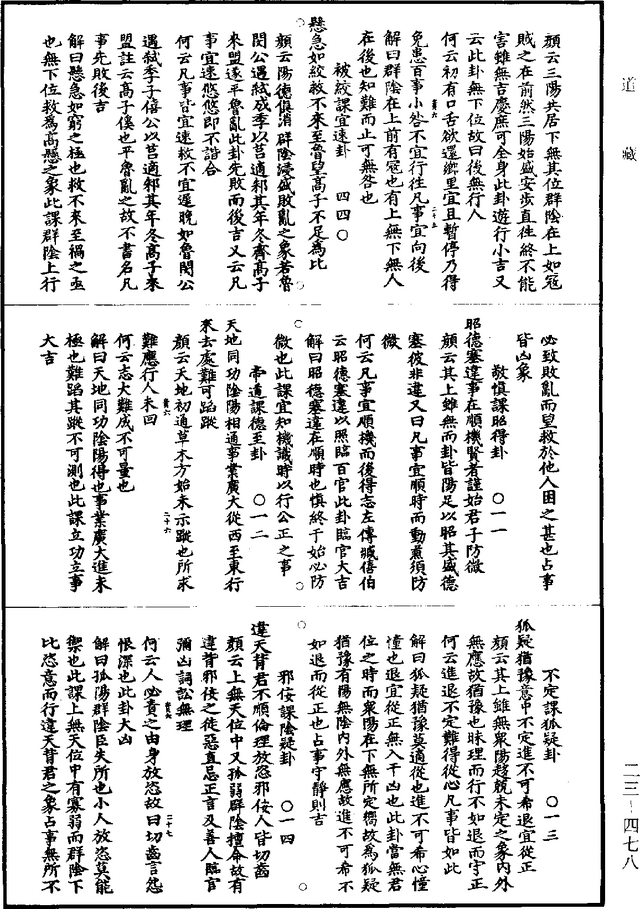 道藏
顏云三陽共居下無其位群陰在上如冠
賊之在前然三陽始盛安步直往終不能
害雖無吉慶庶可全身此卦遊行小吉又
云此卦無下位故曰後無行人
何云初有口舌欲還鄉里宜且暫停乃得
免患百事小咎不宜行往凡事宜向後
解曰群陰在上前有寇也有上無下無人
在後也知難而止可無咎也
被絞課宜速卦 四四〇
懸急如絞救不來至魯望高子不足為比
顏云陽德俱消群陰浸盛敗亂之象若魯
閔公遇弒成季以莒適邾其年冬齊高子
來盟遂平魯亂此卦先敗而後吉又云凡
事宜速悠悠即不諧合
何云凡事皆宜速救不宜遲晚如魯閔公
遇弒季子僖公以莒適邾其年冬高子來
盟註云高子傒也平魯亂之故不書名凡
事先敗後吉
解曰懸急如窮之極也救不來至禍之亟
也無下位救為高懸之象此課群陰上行
必致敗亂而望救於他人困之甚也占事
皆凶象
敬慎課昭得卦 〇一一
昭德塞違事在順機賢者謹始君子防微
顏云其上雖無而卦皆陽足以昭其盛德
塞彼非違又曰凡事宜順時而動薰須防
微
何云凡事宜順機而後得志左傳臧僖伯
云昭德塞違以照臨百官此卦臨官大吉
解曰昭德塞違在順時也慎終于始必防
微也此課宜知機識時以行公正之事
帝道課德至卦 〇一二
天地同功陰陽相通事業廣大從西至東行
來去處難可蹈蹤
顏云天地初通草木方始未示蹤也所求
難應行人未回
何云志大難成不可量也
解曰天地同功陰陽得也事業廣大進未
極也難蹈其蹤不可測也此課立功立事
大吉
不定課狐疑卦 〇一三
狐疑猶豫意中不定進不可希退宜從正
顏云其上雖無衆陽趍競未定之象內外
無應故猶豫也昧理而行不如退而守正
何云進退不定難得從心凡事皆如此
解曰狐疑猶豫莫適從也進不可希心憧
憧也退宜從正無入于凶也此卦當無君
位之時而衆陽在下無所定嚮故為狐疑
猶豫有陽無陰內外無應故進不可希不
如退而從正也占事守靜則吉
邪佞課陰疑卦 〇一四
違天背君不順倫理放恣邪佞人皆切齒
顏云上無天位中又孤弱群陰擅命故有
違背邪佞之徒惡直忌正言及善人臨官
彌凶詞訟無理
何云人必責之由身放恣故曰切齒言怨
恨深也此卦大凶
解曰孤陽群陰臣失所也小人放恣莫能
禦也此課上無天位中有寡弱而群陰下
比恣意而行違天背君之象占事無所不
二三—四七八